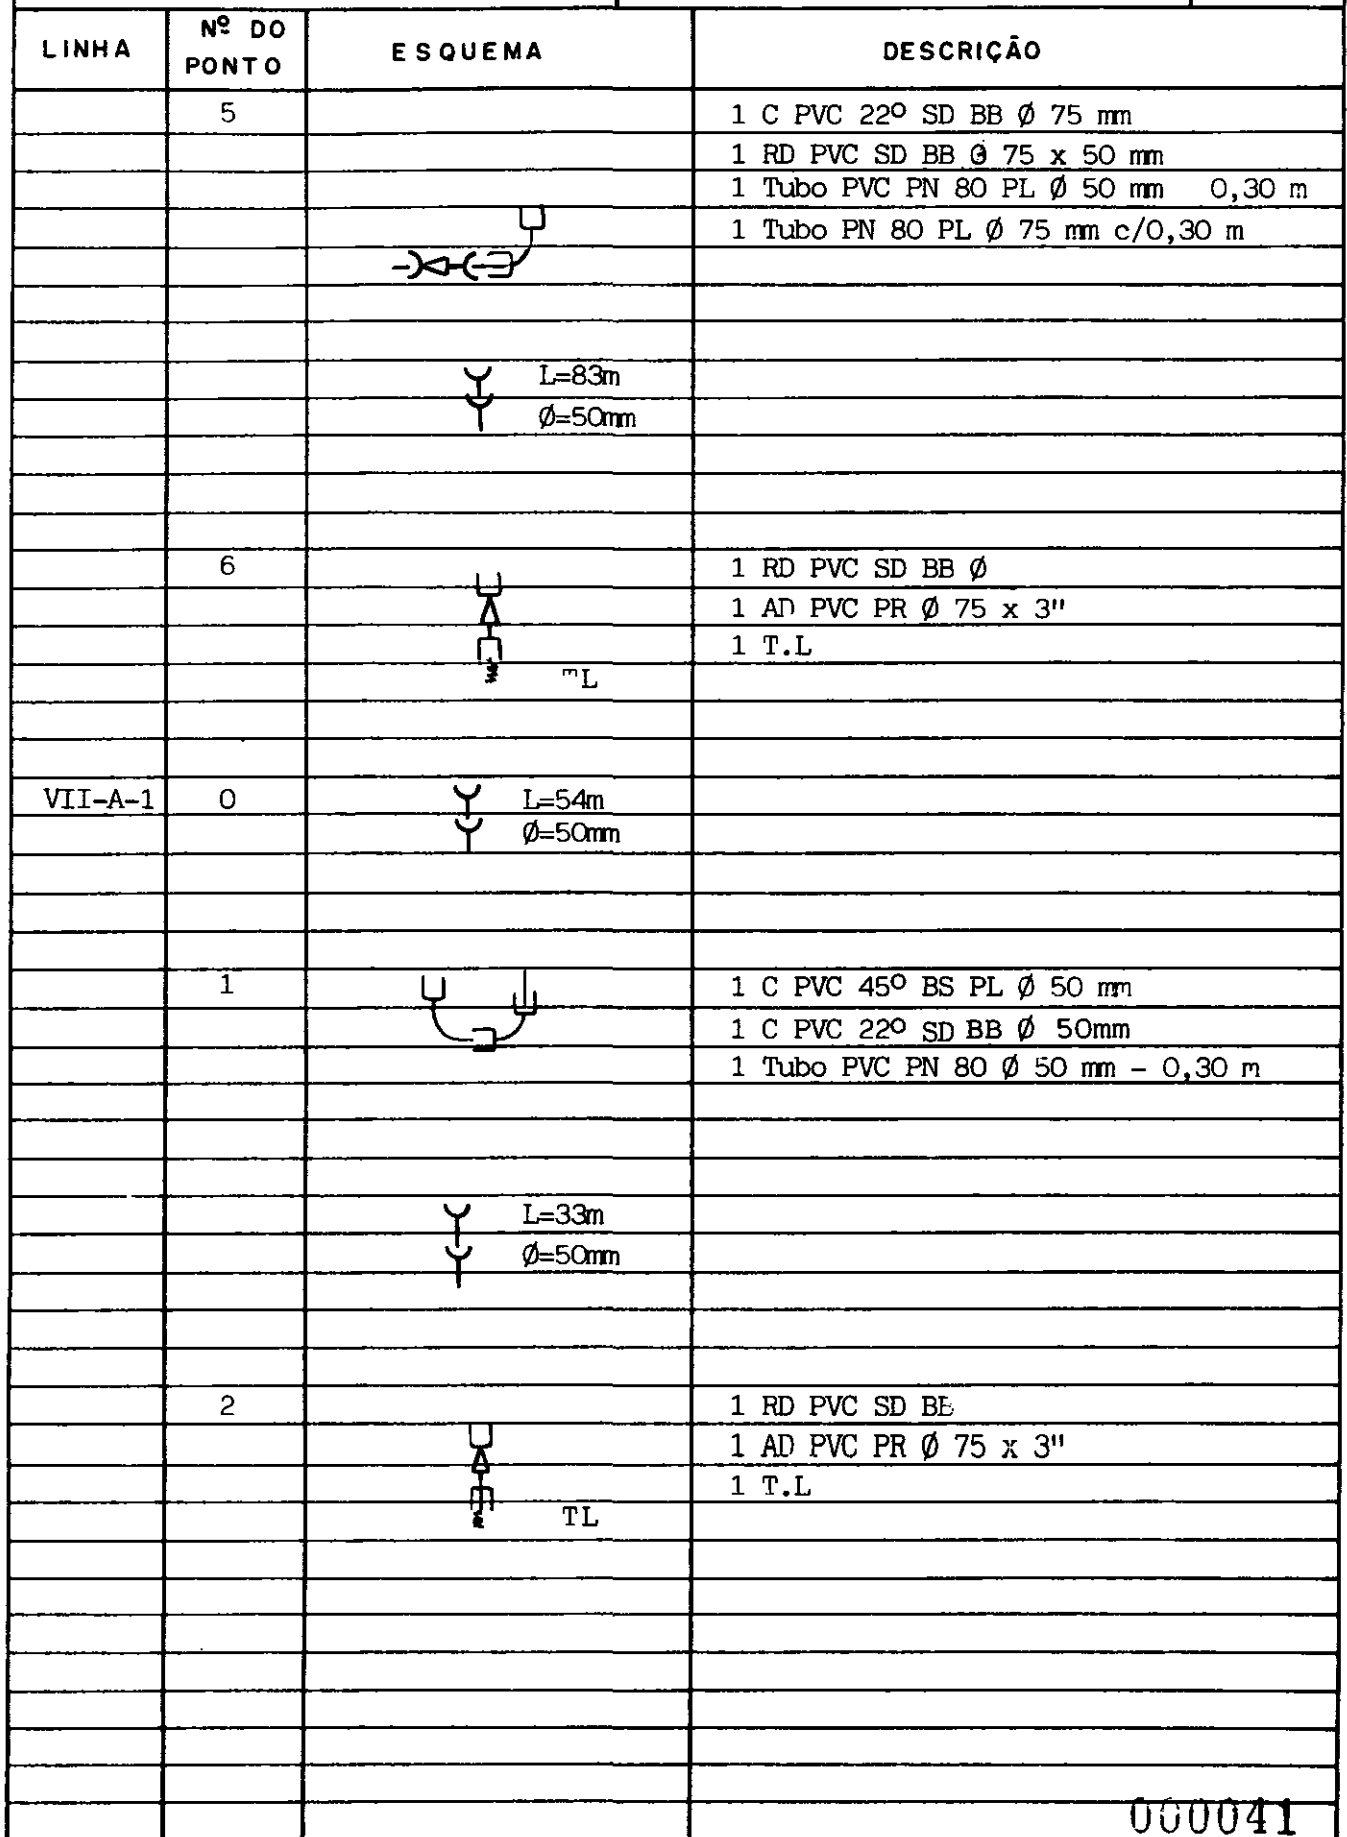 LINHA Nº DO PONTO ESQUEMA DESCRIÇÃO
5 1 C PVC 22º SD BB Ø 75 mm
1 RD PVC SD BB Ø 75 x 50 mm
1 Tubo PVC PN 80 PL Ø 50 mm 0,30 m
1 Tubo PN 80 PL Ø 75 mm c/0,30 m
L=83m
Ø=50mm
6 1 RD PVC SD BB Ø
1 AD PVC PR Ø 75 x 3"
1 T.L
L
VII-A-1 0 L=54m
Ø=50mm
1 1 C PVC 45º BS PL Ø 50 mm
1 C PVC 22º SD BB Ø 50mm
1 Tubo PVC PN 80 Ø 50 mm - 0,30 m
L=33m
Ø=50mm
2 1 RD PVC SD BB
1 AD PVC PR Ø 75 x 3"
1 T.L
TL
000041